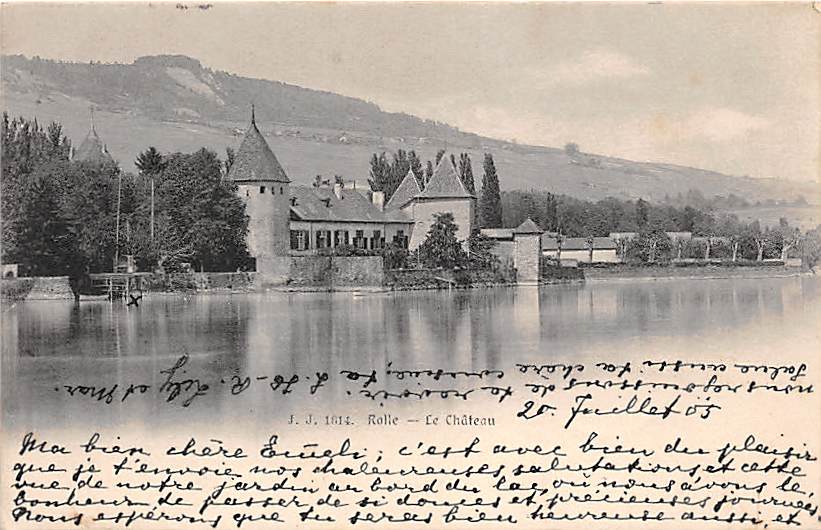 J. J. 1614. Rolle — Le Château
20. Juillet 05
Ma bien chère Emeli; c'est avec bien du plaisir
que je t'envoie nos chaleureuses salutations et cette
vue de notre jardin au bord du lac, où nous avons le
bonheur de passer de si douces et précieuses journées
Nous espérons que tu seras bien heureuse aussi, et
nous nous de ta revoir. ta cousine,
Salue aussi ta chère